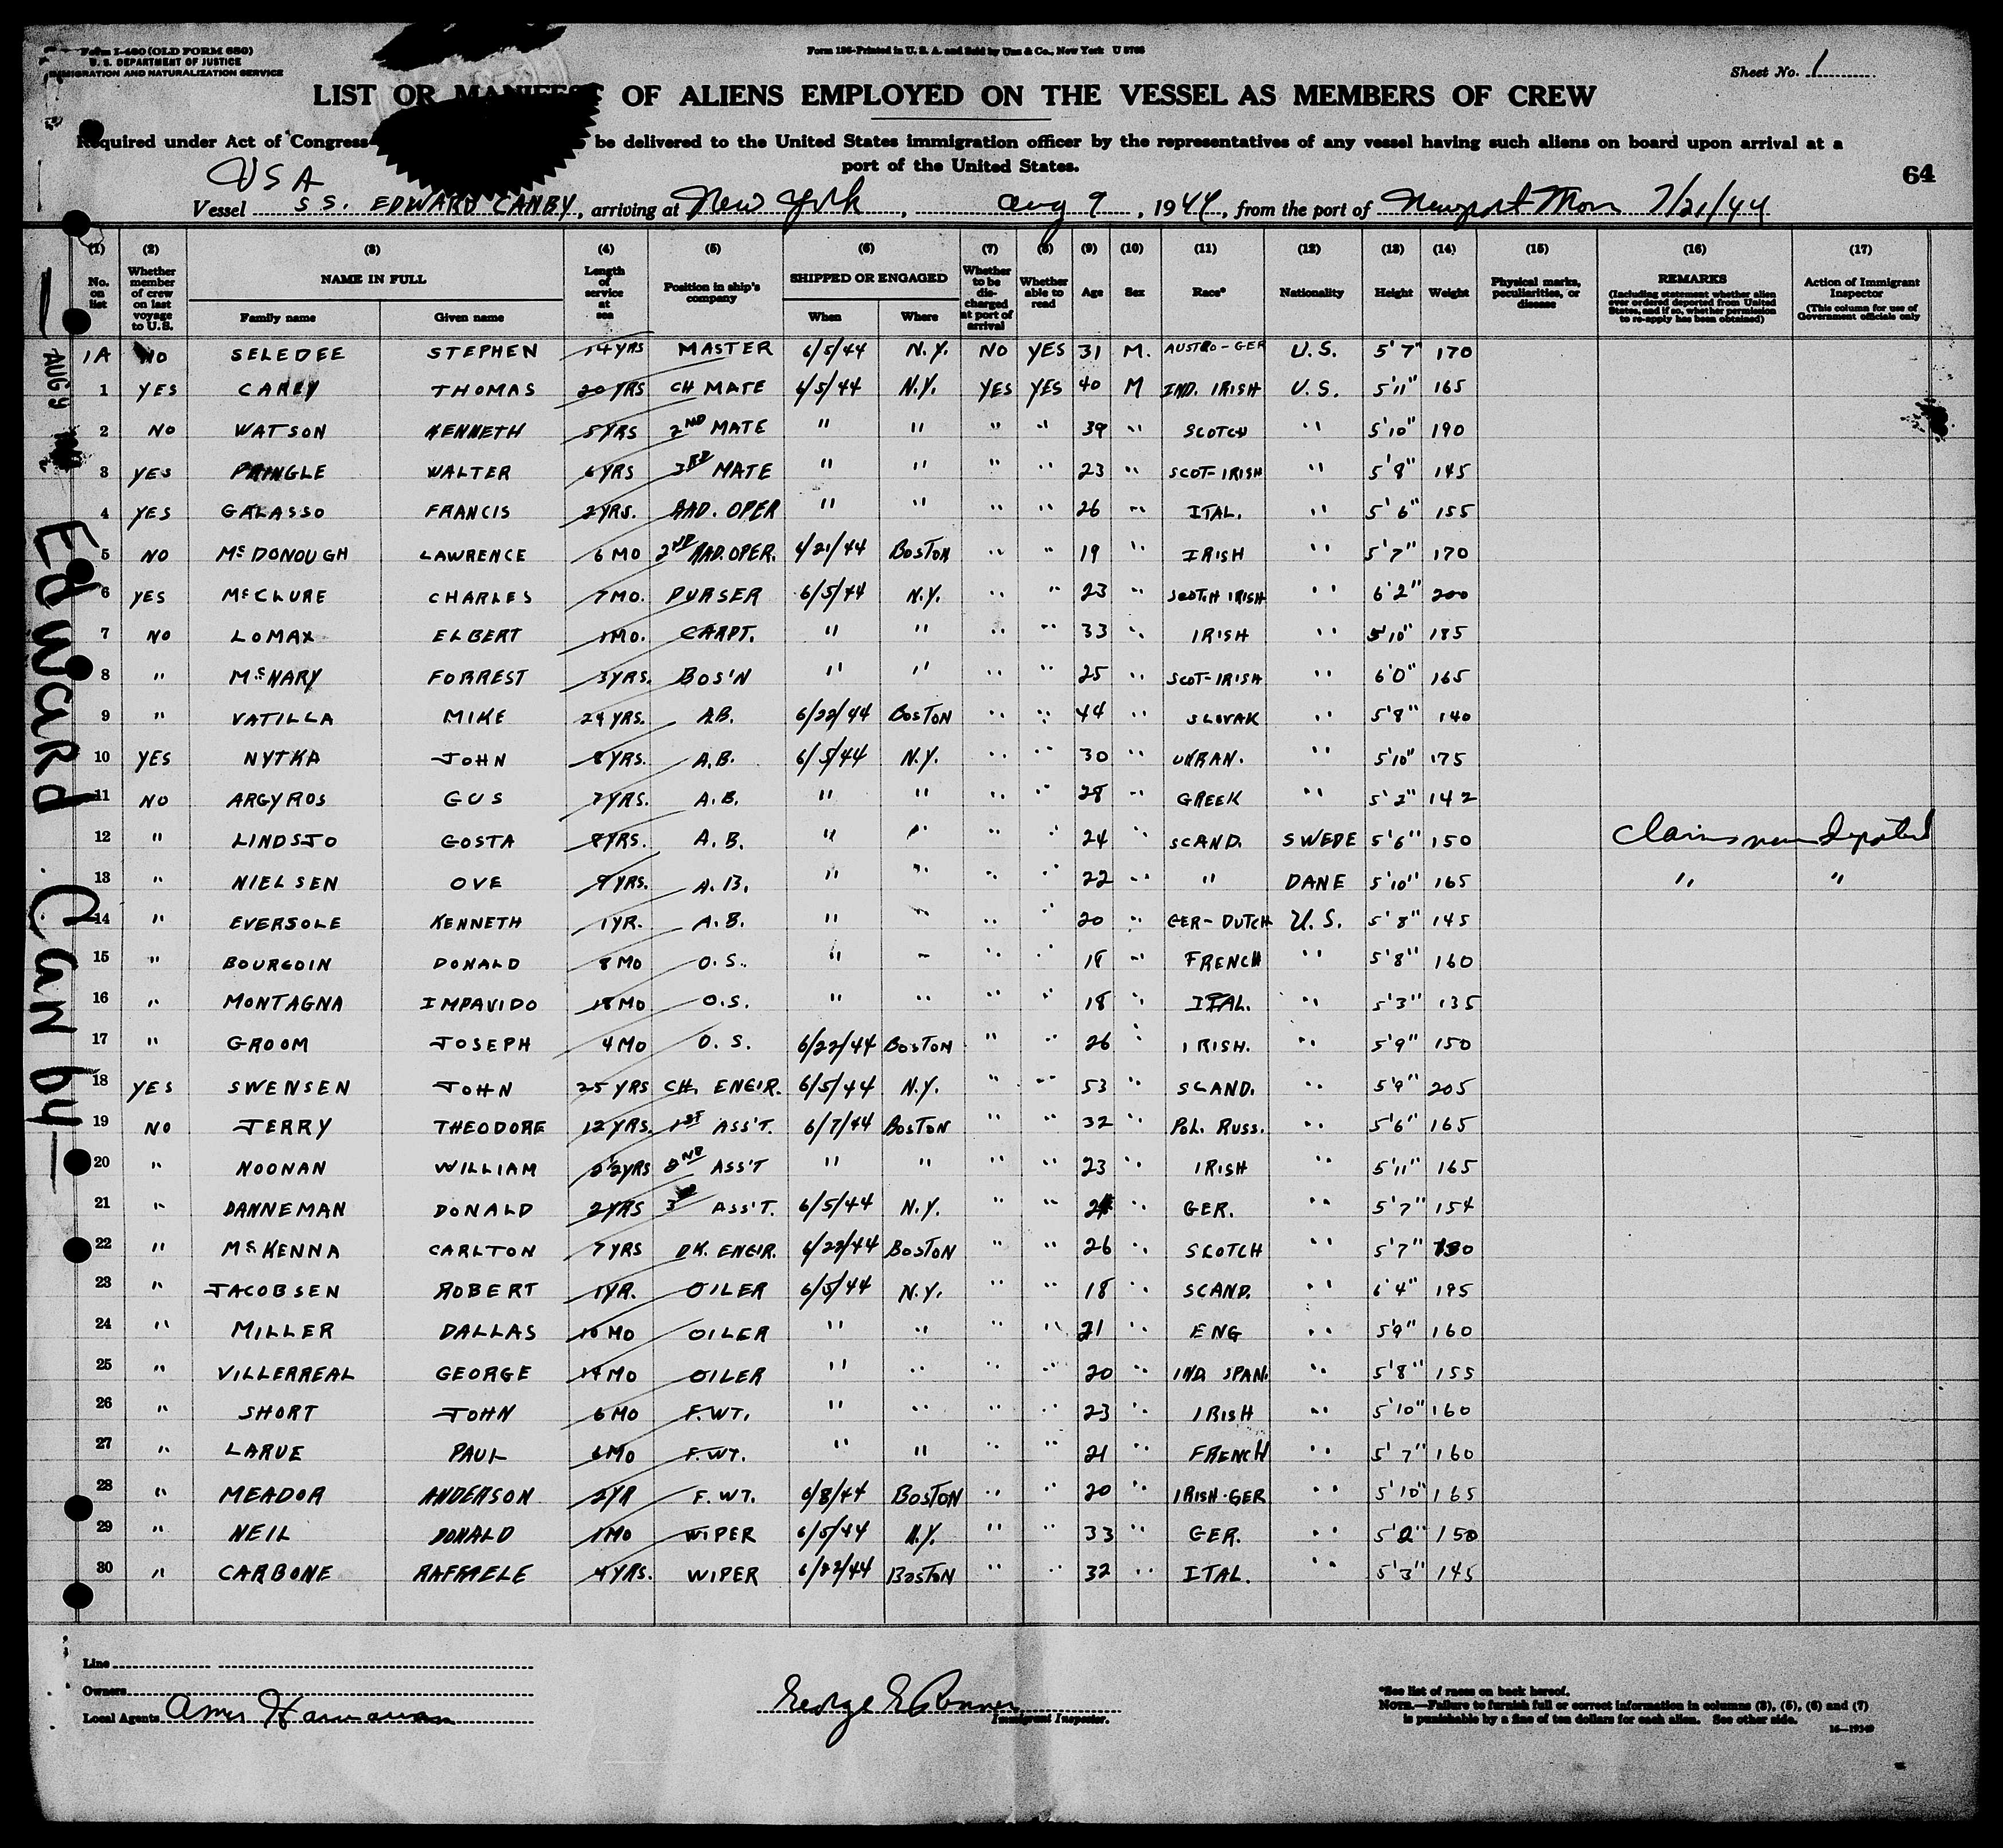 Form I-480 (OLD FORM 680)
U. S. DEPARTMENT OF JUSTICE
IMMIGRATION AND NATURALIZATION SERVICE
Form 186-Printed in U. S. A. and Sold by Unz & Co., New York U 5766
Sheet No. 1
LIST OR MANIFEST OF ALIENS EMPLOYED ON THE VESSEL AS MEMBERS OF CREW
Required under Act of Congress be delivered to the United States immigration officer by the representatives of any vessel having such aliens on board upon arrival at a
port of the United States.
64
USA
Vessel S S. EDWARD CANBY, arriving at New York, Aug 9, 1944, from the port of Newport Mon 7/21/44
(1) (2) (3) (4) (5) (6) (7) (8) (9) (10) (11) (12) (13) (14) (15) (16) (17)
No. on list Whether member of crew on last voyage to U.S. NAME IN FULL Family name Given name Length of service at sea Position in ship's company SHIPPED OR ENGAGED When Where Whether to be discharged at port of arrival Whether able to read Age Sex Race* Nationality Height Weight Physical marks, peculiarities, or disease REMARKS (Including statement whether alien ever ordered deported from United States, and if so, whether permission to re-apply has been obtained) Action of Immigrant Inspector (This column for use of Government officials only
1A NO SELEDEE STEPHEN 14 YRS MASTER 6/5/44 N.Y. NO YES 31 M. AUSTRO-GER U.S. 5'7" 170
1 YES CAREY THOMAS 20 YRS CH MATE 6/5/44 N.Y. YES YES 40 M IND. IRISH U.S. 5'11" 165
2 NO WATSON KENNETH 5 YRS 2ND MATE " " " " 39 " SCOTCH " 5'10" 190
3 YES PRINGLE WALTER 6 YRS 3RD MATE " " " " 23 " SCOT-IRISH " 5'8" 145
4 YES GALASSO FRANCIS 2 YRS. RAD. OPER " " " " 26 " ITAL. " 5'6" 155
5 NO McDONOUGH LAWRENCE 6 MO 2ND RAD. OPER. 6/21/44 BOSTON " " 19 " IRISH " 5'7" 170
6 YES McCLURE CHARLES 7 MO. PURSER 6/5/44 N.Y. " " 23 " SCOTCH IRISH " 6'2" 200
7 NO LOMAX ELBERT 1 MO. CARPT. " " " " 33 " IRISH " 5'10" 185
8 " McNARY FORREST 3 YRS. BOS'N " " " " 25 " SCOT-IRISH " 6'0" 165
9 " VATILLA MIKE 24 YRS. AB. 6/22/44 BOSTON " " 44 " SLOVAK " 5'8" 140
10 YES NYTKA JOHN 8 YRS. A.B. 6/5/44 N.Y. " " 30 " UKRAN. " 5'10" 175
11 NO ARGYROS GUS 7 YRS. A.B. " " " " 28 " GREEK " 5'2" 142
12 " LINDSJO GOSTA 8 YRS. A.B. " " " " 24 " SCAND. SWEDE 5'6" 150 Claims never deported
13 " NIELSEN OVE 9 YRS. A.B. " " " " 22 " " DANE 5'10" 165 " "
14 " EVERSOLE KENNETH 1 YR. A.B. " " " " 20 " GER-DUTCH U.S. 5'8" 145
15 " BOURGOIN DONALD 8 MO O.S. " " " " 18 " FRENCH " 5'8" 160
16 " MONTAGNA IMPAVIDO 18 MO O.S. " " " " 18 " ITAL. " 5'3" 135
17 " GROOM JOSEPH 4 MO O.S. 6/22/44 BOSTON " " 26 " IRISH. " 5'9" 150
18 YES SWENSEN JOHN 25 YRS CH. ENGIR. 6/5/44 N.Y. " " 53 " SCAND. " 5'9" 205
19 NO JERRY THEODORE 12 YRS. 1ST ASS'T. 6/7/44 BOSTON " " 32 " POL. RUSS. " 5'6" 165
20 " NOONAN WILLIAM 2½ YRS 2ND ASS'T " " " " 23 " IRISH " 5'11" 165
21 " DANNEMAN DONALD 2 YRS 3RD ASS'T. 6/5/44 N.Y. " " 24 " GER. " 5'7" 154
22 " McKENNA CARLTON 7 YRS DK. ENGIR. 6/22/44 BOSTON " " 26 " SCOTCH " 5'7" 130
23 " JACOBSEN ROBERT 1 YR. OILER 6/5/44 N.Y. " " 18 " SCAND. " 6'4" 195
24 " MILLER DALLAS 10 MO OILER " " " " 21 " ENG " 5'9" 160
25 " VILLERREAL GEORGE 14 MO OILER " " " " 20 " IND SPAN. " 5'8" 155
26 " SHORT JOHN 6 MO F.WT. " " " " 23 " IRISH " 5'10" 160
27 " LARUE PAUL 6 MO F.WT. " " " " 21 " FRENCH " 5'7" 160
28 " MEADOR ANDERSON 2 YR F.WT. 6/8/44 BOSTON " " 20 " IRISH-GER " 5'10" 165
29 " NEIL DONALD 1 MO WIPER 6/5/44 N.Y. " " 33 " GER. " 5'2" 150
30 " CARBONE RAFFAELE 4 YRS. WIPER 6/22/44 BOSTON " " 32 " ITAL. " 5'3" 145
AUG 9
Edward Canby
Line
Owners
Local Agents Amer Hawaiian
George E.
Immigrant Inspector.
*See list of races on back hereof.
NOTE.—Failure to furnish full or correct information in columns (3), (5), (6) and (7)
is punishable by a fine of ten dollars for each alien. See other side.
16—19340